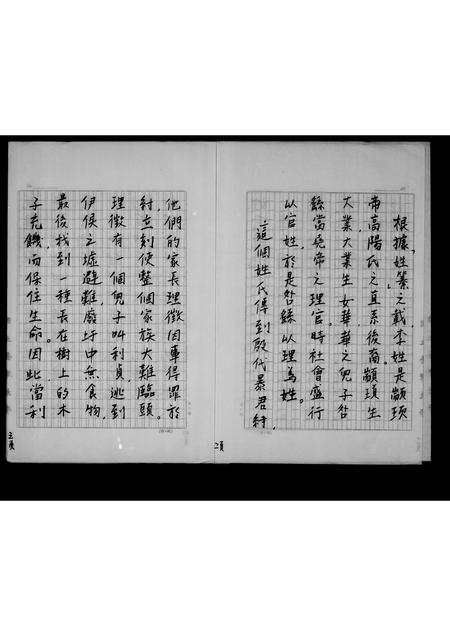 根據「姓纂」之載，李姓是顓頊
帝高陽氏之直系後裔。顓頊生
大業，大業生女華，華之兒子咎
繇當堯帝之理官，時社會盛行
以官姓，於是咎繇以理為姓。
這個姓氏傳到殷代暴君紂，
二頁
他們的家長理徵因事得罪於
紂，立刻使整個家族大難臨頭。
理徵有一個兒子叫利貞，逃到
伊侯之墟避難，廢圩中無食物，
最後找到一種長在樹上的木
子充饑，而保住生命。因此當利
三頁